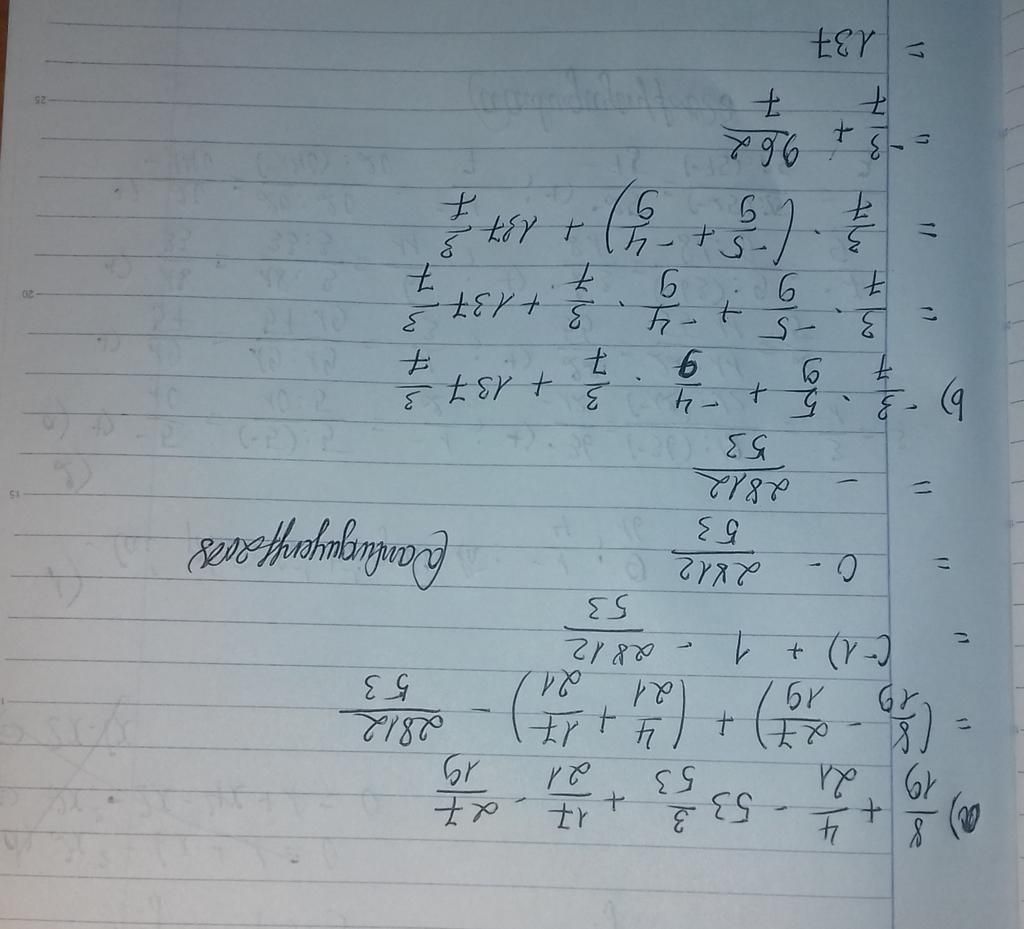 a) 8/19 + 4/21 - 53 3/53 + 17/21 - 27/19
= (8/19 - 27/19) + (4/21 + 17/21) - 2812/53
= (-1) + 1 - 2812/53
= 0 - 2812/53
= - 2812/53
15
b) -3/7 . 5/9 + -4/9 . 3/7 + 137 3/7
= 3/7 . -5/9 + -4/9 . 3/7 + 137 3/7
20
= 3/7 . (-5/9 + -4/9) + 137 3/7
= -3/7 + 962/7
25
= 137